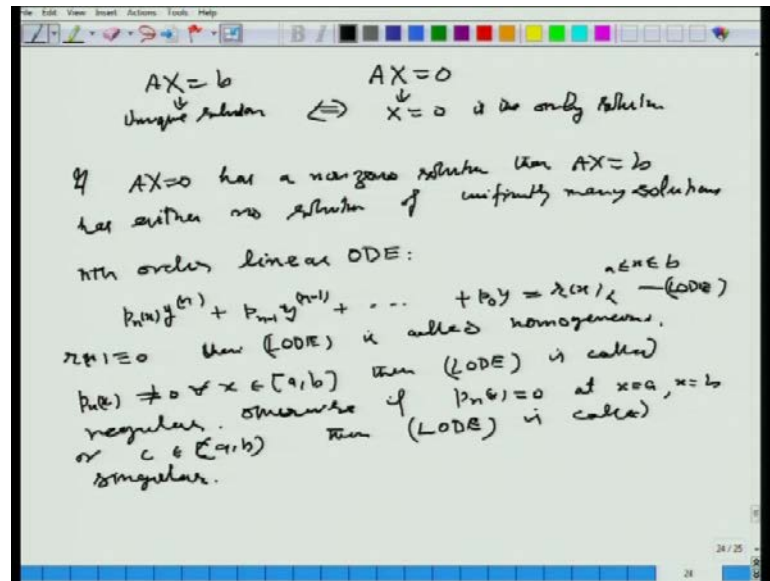 File Edit View Insert Actions Tools Help
AX = b AX = 0
Unique solution ⇔ X = 0 is the only solution
If AX=0 has a non zero solution then AX = b
has either no solution of infinitely many solutions
nth order linear ODE:
pₙ(x) y⁽ⁿ⁾ + pₙ₋₁ y⁽ⁿ⁻¹⁾ + ... + p₀y = r(x), a ≤ x ≤ b —(LODE)
r(x) ≡ 0 then (LODE) is called homogeneous.
pₙ(x) ≠ 0 ∀ x ∈ [a,b] then (LODE) is called
regular. otherwise if pₙ(x) = 0 at x=a, x=b
or c ∈ (a,b) then (LODE) is called
singular.
24 / 25
24